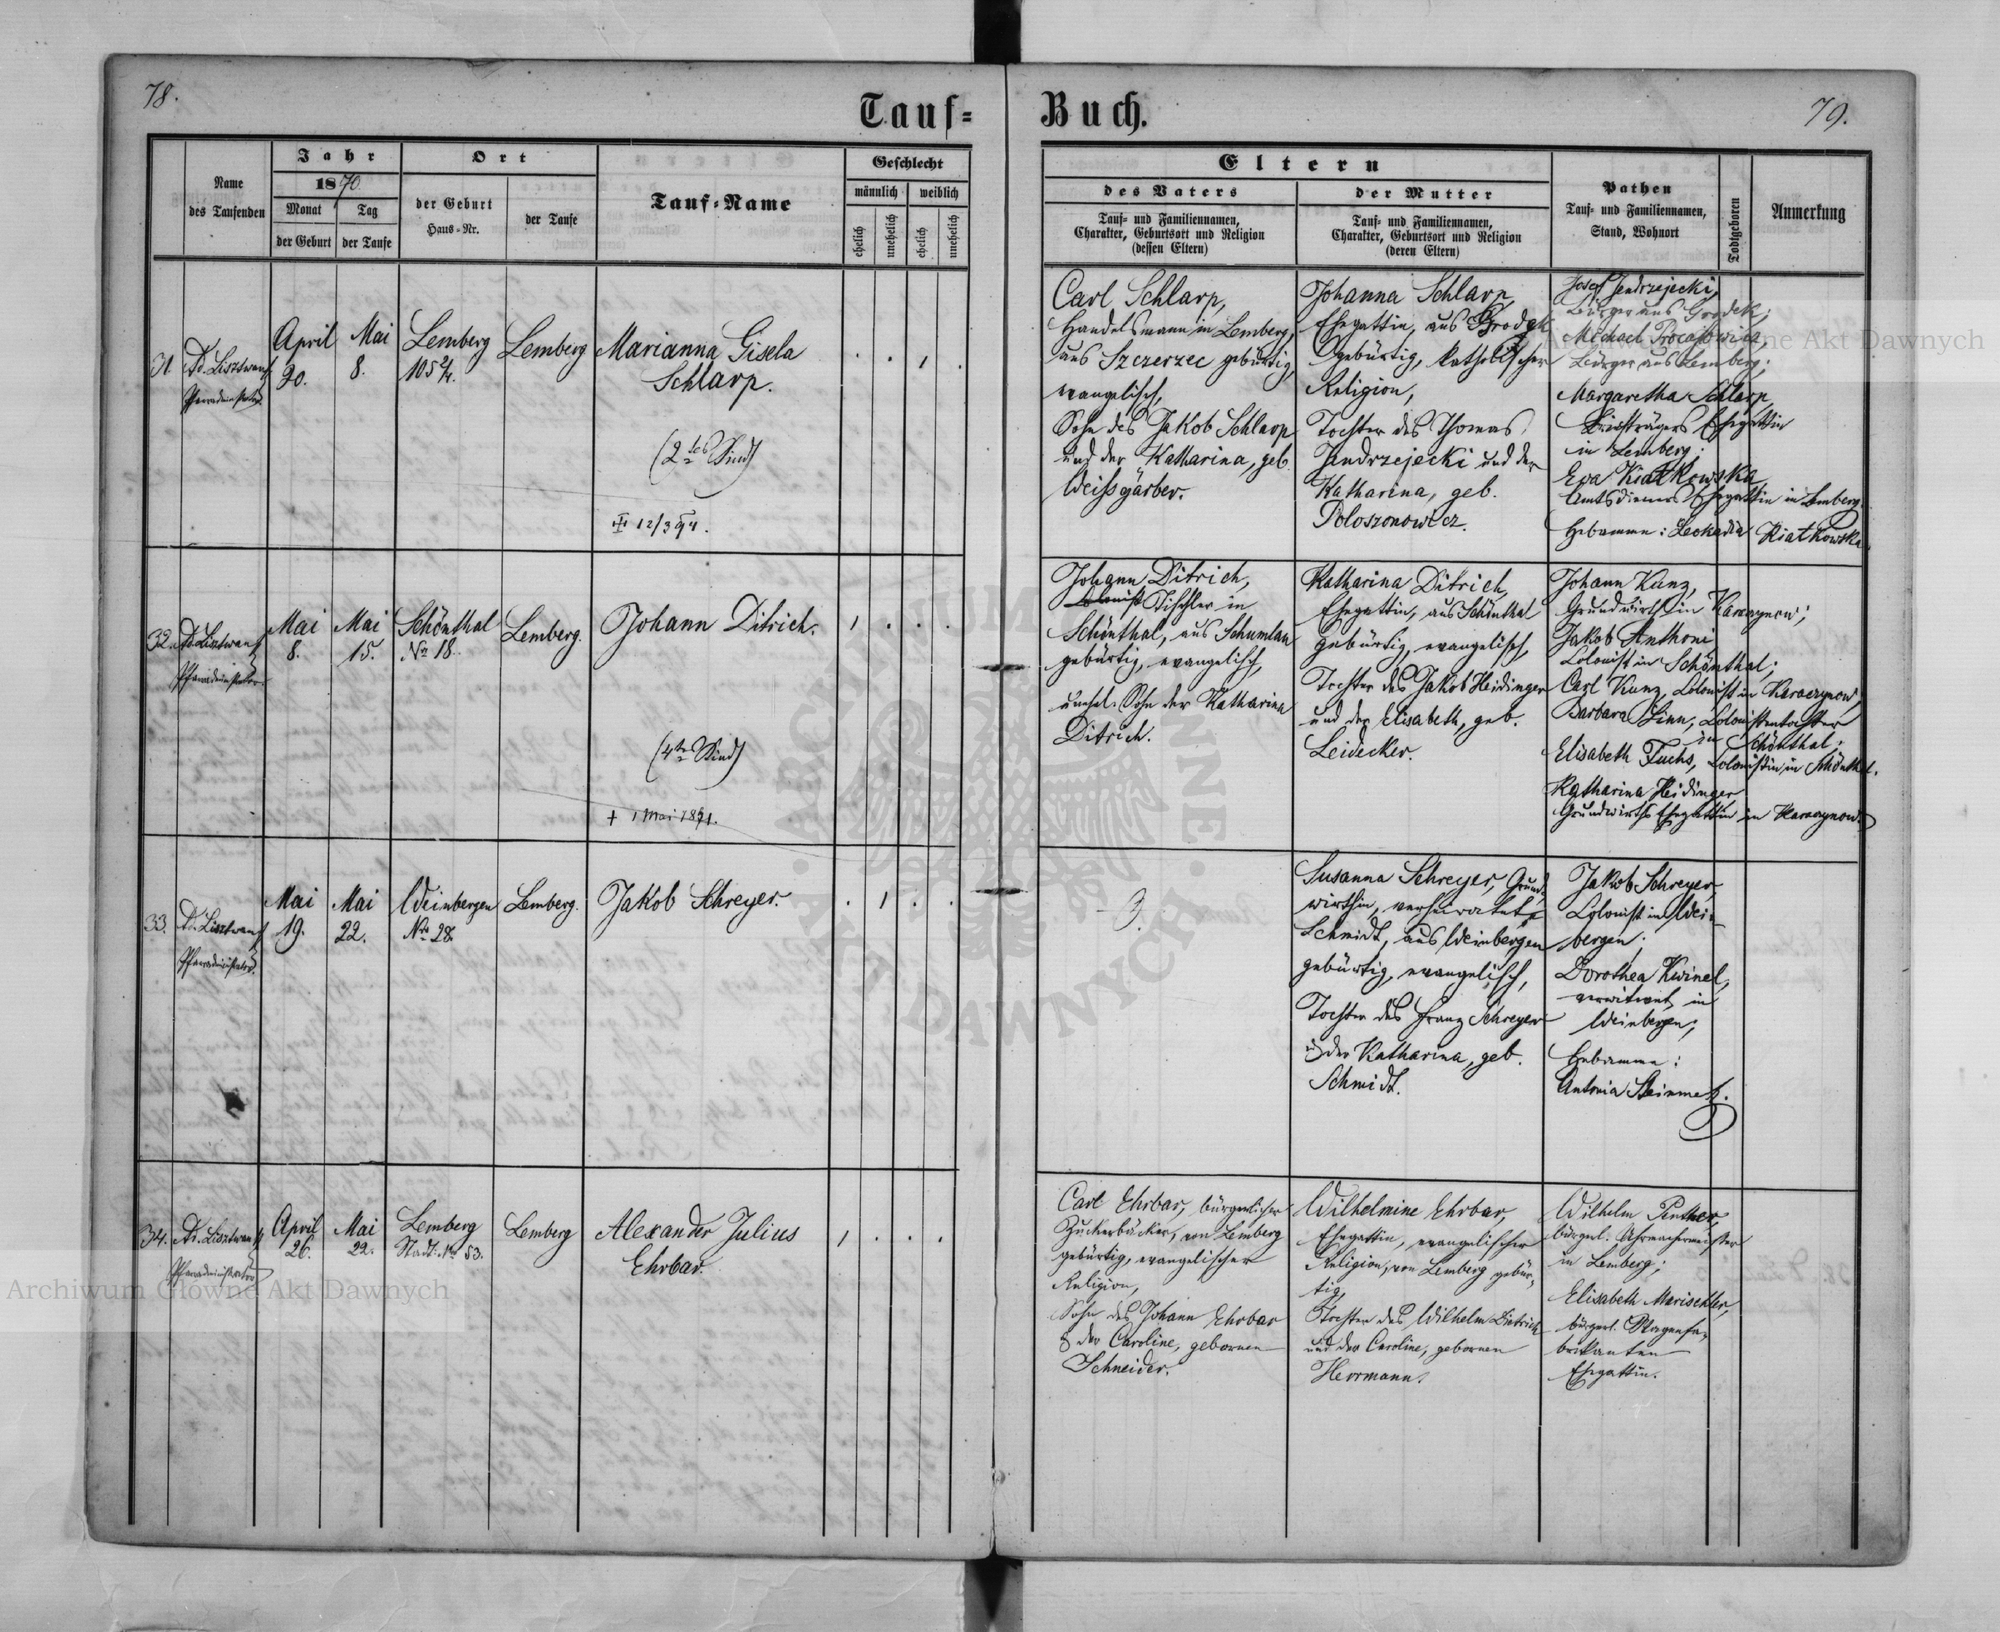 78.
Tauf=
Buch.
79.
Name
des Taufenden
Jahr
1870
Monat
der Geburt
Tag
der Taufe
Ort
der Geburt
Haus=Nr.
der Taufe
Tauf=Name
Geschlecht
männlich
weiblich
ehelich
unehelich
ehelich
unehelich
Eltern
des Vaters
Tauf= und Familiennamen,
Charakter, Geburtsort und Religion
(dessen Eltern)
der Mutter
Tauf= und Familiennamen,
Charakter, Geburtsort und Religion
(deren Eltern)
Pathen
Tauf= und Familiennamen,
Stand, Wohnort
Todtgeboren
Anmerkung
31
Pfarradministrator
April
20.
Mai
8.
Lemberg
105 2/4.
Lemberg
Marianna Gisela
Schlarp.
(2tes Kind)
12/3 94.
Carl Schlarp,
Handelsmann in Lemberg,
aus Szczerzec gebürtig,
evangelisch,
Sohn des Jakob Schlarp
und der Katharina, geb.
Weissgärber.
Johanna Schlarp,
Ehegattin, aus Grodek
gebürtig, katholischer
Religion,
Tochter des Thomas
Jendrzejecki und der
Katharina, geb.
Poloszonowicz.
Josef Jendrzejecki,
Bürger aus Grodek;
Michael
Bürger aus Lemberg;
Margaretha Schlarp,
Briefträgers Ehegattin
in Lemberg;
Eva Kiatkowska
Amtsdieners Ehegattin in Lemberg.
Hebamme: Leokadia Kiatkowska
32.
Pfarradministrator
Mai
8.
Mai
15.
Schönthal
No 18.
Lemberg.
Johann Ditrich.
(4te Kind)
+ 1 Mai 1871.
Johann Ditrich,
Colonist Tischler in
Schönthal, aus Schumlau
gebürtig, evangelisch,
unehel. Sohn der Katharina
Ditrich.
Katharina Ditrich,
Ehegattin, aus Schönthal
gebürtig, evangelisch,
Tochter des Jakob Heidinger
und der Elisabeth, geb.
Leidecker.
Johann Kunz,
Grundwirth in Karaczynow;
Jakob Anthoni
Colonist in Schönthal;
Carl Kunz, Colonist in Karaczynow
Barbara Linn, Colonistentochter
in Schönthal;
Elisabeth Fuchs, Colonistin in Schönthal.
Katharina Heidinger
Grundwirths Ehegattin in Karaczynow.
33.
Pfarradministrator.
Mai
19.
Mai
22.
Weinbergen
No 28.
Lemberg.
Jakob Schreyer.
Susanna Schreyer, Grund-
wirthin, verheiratete
Schmidt, aus Weinbergen
gebürtig, evangelisch,
Tochter des Franz Schreyer
u der Katharina, geb.
Schmidt.
Jakob Schreyer,
Colonist in Wein-
bergen;
Dorothea Kwinel,
verwitwet in
Weinbergen;
Hebamme:
Antonia Steinmetz.
34.
Pfarradministrator
April
26.
Mai
22.
Lemberg
Stadt: No 53.
Lemberg
Alexander Julius
Ehrbar.
Carl Ehrbar, bürgerlicher
Zuckerbäcker, von Lemberg
gebürtig, evangelischer
Religion,
Sohn des Johann Ehrbar
& der Caroline, gebornen
Schneider.
Wilhelmine Ehrbar,
Ehegattin, evangelischer
Religion, von Lemberg gebür-
tig,
Tochter des Wilhelm Dietrich
und der Caroline, gebornen
Herrmann.
Wilhelm Penther,
bürgerl. Uhrmachermeister
in Lemberg;
Elisabeth Marischler,
bürgerl. Wagenfa-
brikanten
Ehegattin.
Archiwum Główne Akt Dawnych
ARCHIWUM GŁÓWNE · AKT DAWNYCH ·